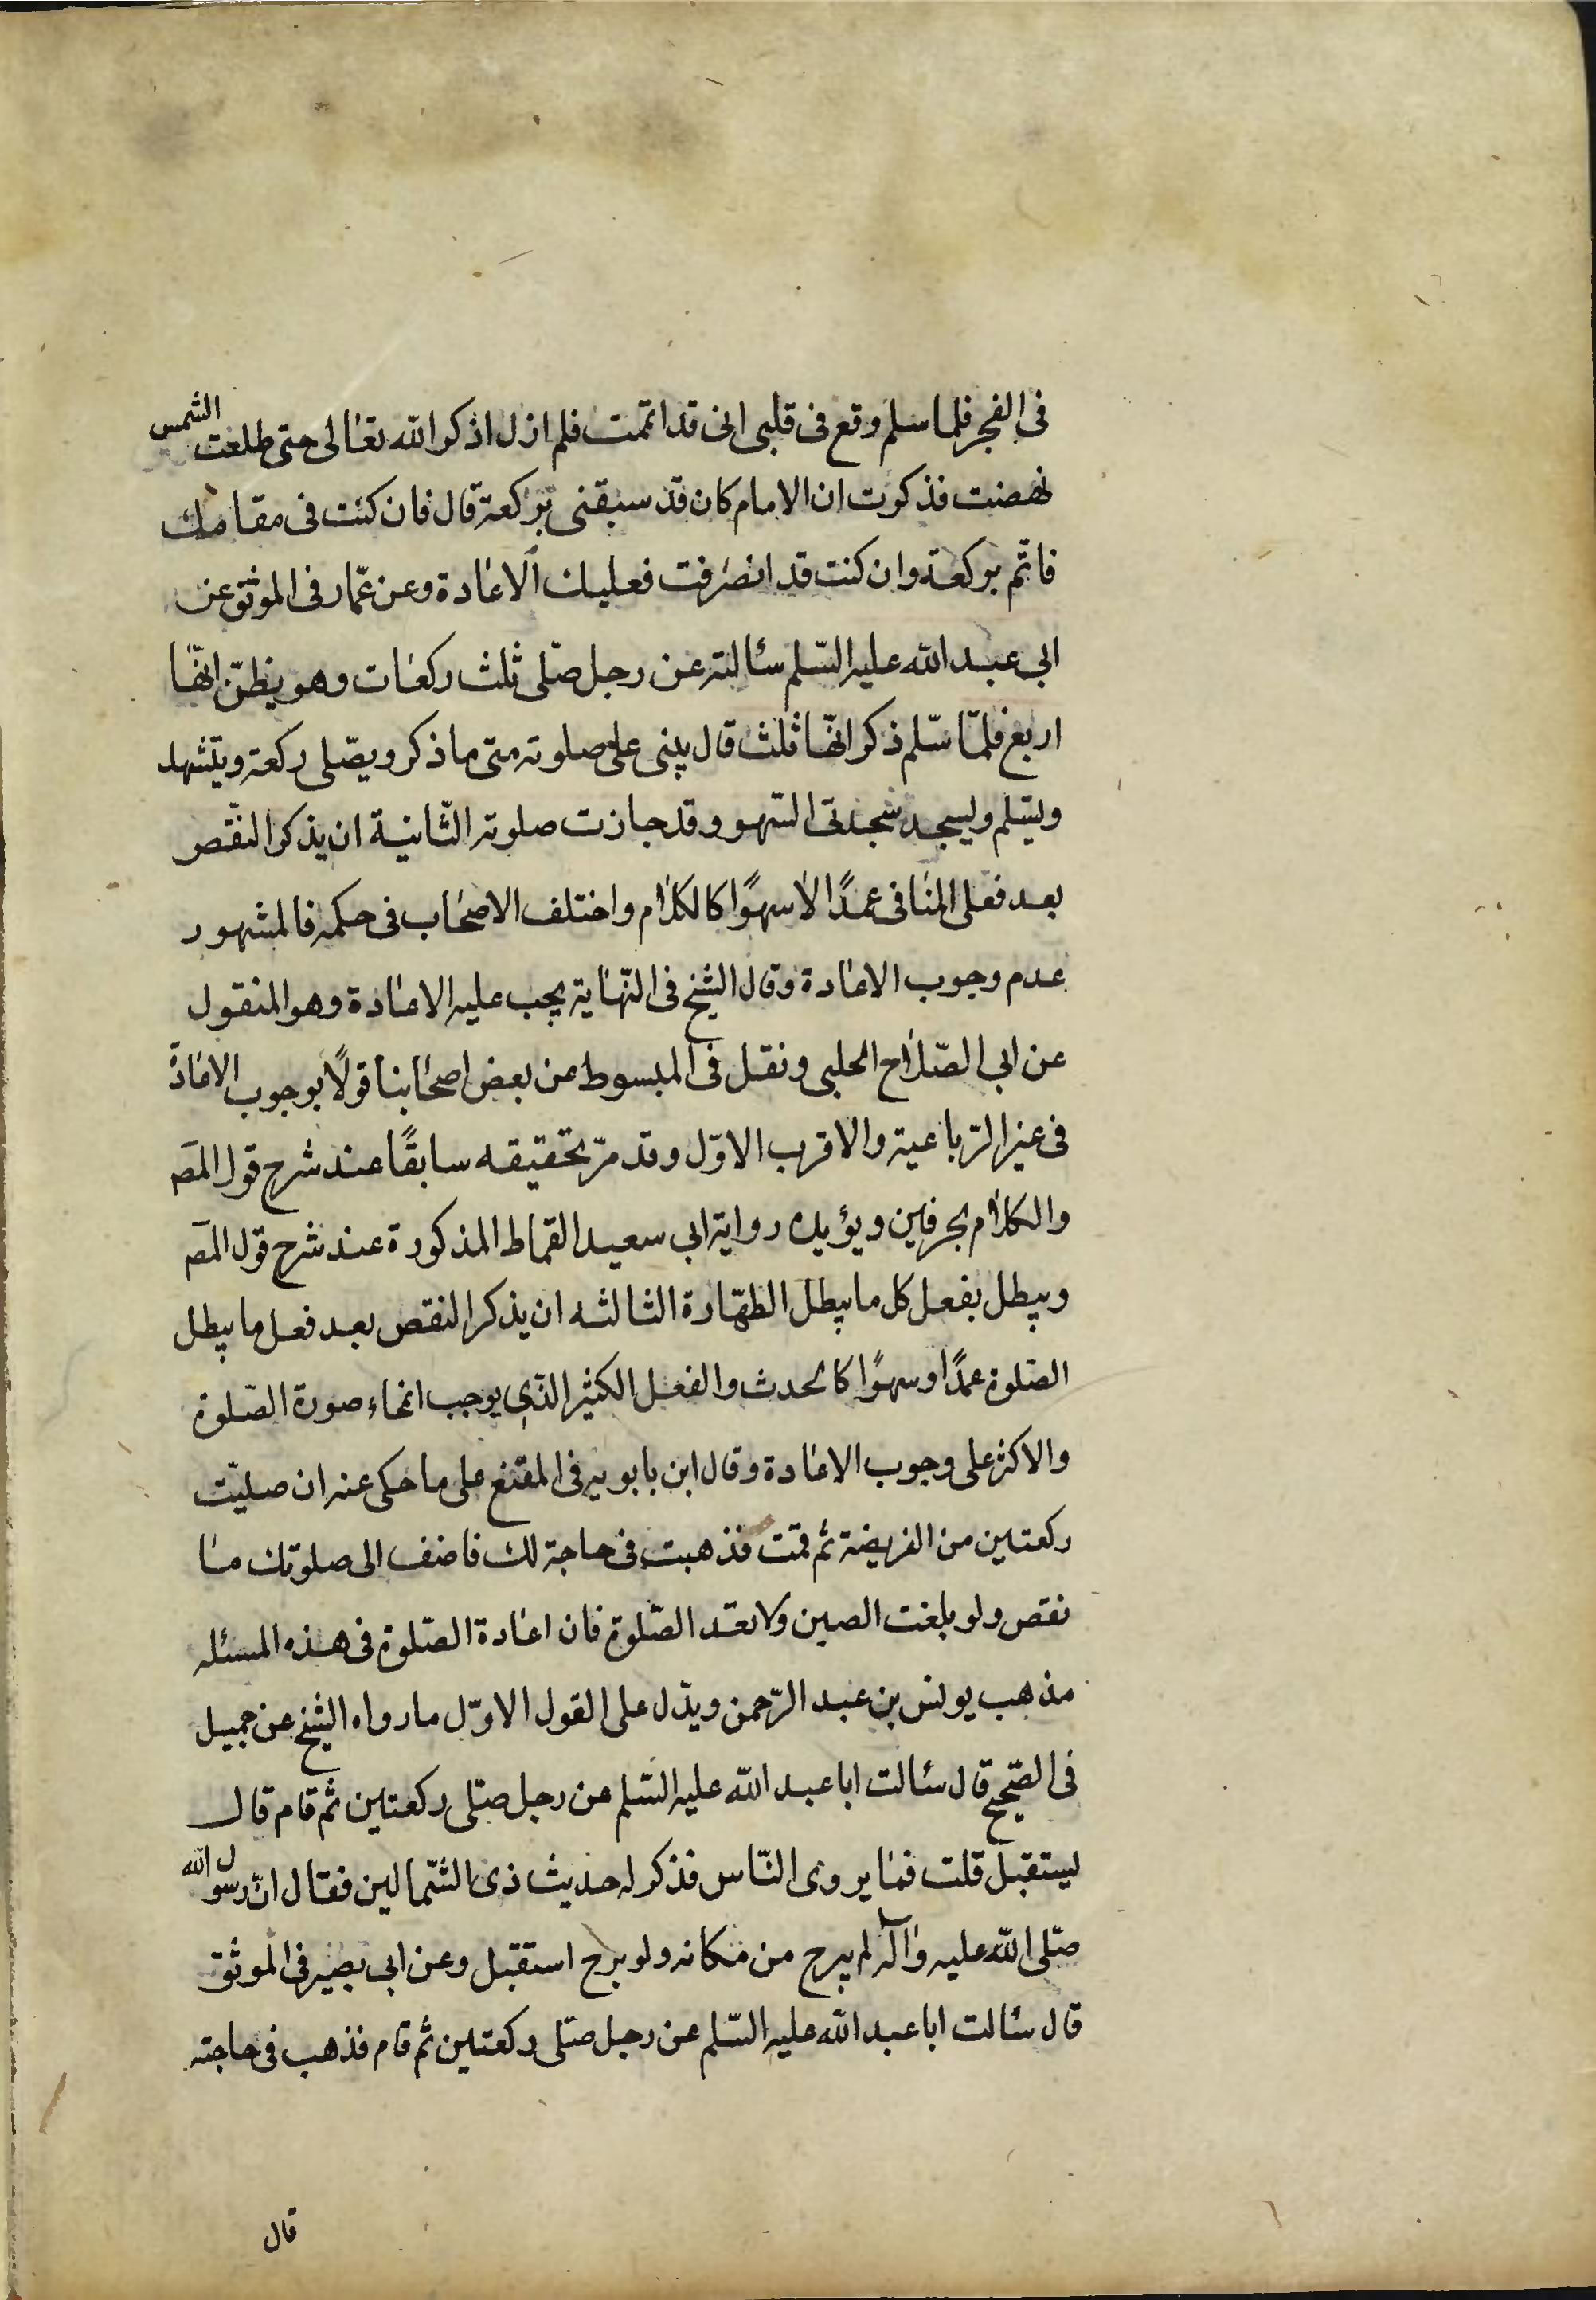 فى الفجر فلما سلم وقع فى قلبى انى قد اتممت فلم ازل اذكر الله تعالى حتى طلعت الشمس
نهضت فذكرت ان الامام كان قد سبقنى بركعة قال فان كنت فى مقامك
فاتم بركعة وان كنت قد انصرفت فعليك الاعادة وعن عمّار فى الموثق عن
ابى عبد الله عليه السّلم سئالته عن رجل صلّى ثلث ركعات وهو يظنّ انّها
اربع فلمّا سلّم ذكر انّها ثلث قال يبنى على صلوته متى ما ذكر ويصلّى ركعة ويتشهد
ويسلّم ويسجد سجدتى السّهو وقد جازت صلوته الثّانية ان يذكر النقص
بعد فعل المنافى عمدًا لا سهوًا كالكلام واختلف الاصحاب فى حكمه فالمشهور
عدم وجوب الاعادة وقال الشيخ فى النّهاية يجب عليه الاعادة وهو المنقول
عن ابى الصّلاح الحلبى ونقل فى المبسوط عن بعض اصحابنا قولًا بوجوب الاعادة
فى غير الرّباعية والاقرب الاوّل وقد مرّ تحقيقه سابقًا عند شرح قول المص
والكلام بحرفين ويؤيده رواية ابى سعيد القماط المذكورة عند شرح قول المص
ويبطل بفعل كل ما يبطل الطهّارة الثالثه ان يذكر النقص بعد فعل ما يبطل
الصّلوة عمدًا وسهوًا كالحدث والفعل الكثير الذّى يوجب انمحاء صورة الصّلوة
والاكثر على وجوب الاعادة وقال ابن بابويه فى المقنع على ما حكى عنه ان صليّت
ركعتين من الفريضة ثم قمت فذهبت فى حاجة لك فاضف الى صلوتك ما
نقص ولو بلغت الصين ولا تعد الصّلوة فان اعادة الصّلوة فى هذه المسئله
مذهب يونس بن عبد الرّحمن ويدّل على القول الاوّل ما رواه الشيخ عن جميل
فى الصّحيح قال سئالت ابا عبد الله عليه السّلم عن رجل صلّى ركعتين ثم قام قال
يستقبل قلت فما يروى النّاس فذكر له حديث ذى الشّمالين فقال انّ رسول الله
صلّى الله عليه وآله لم يبرح من مكانه ولو برح استقبل وعن ابى بصير فى الموثق
قال سئالت ابا عبد الله عليه السّلم عن رجل صلّى ركعتين ثم قام فذهب فى حاجته
قال